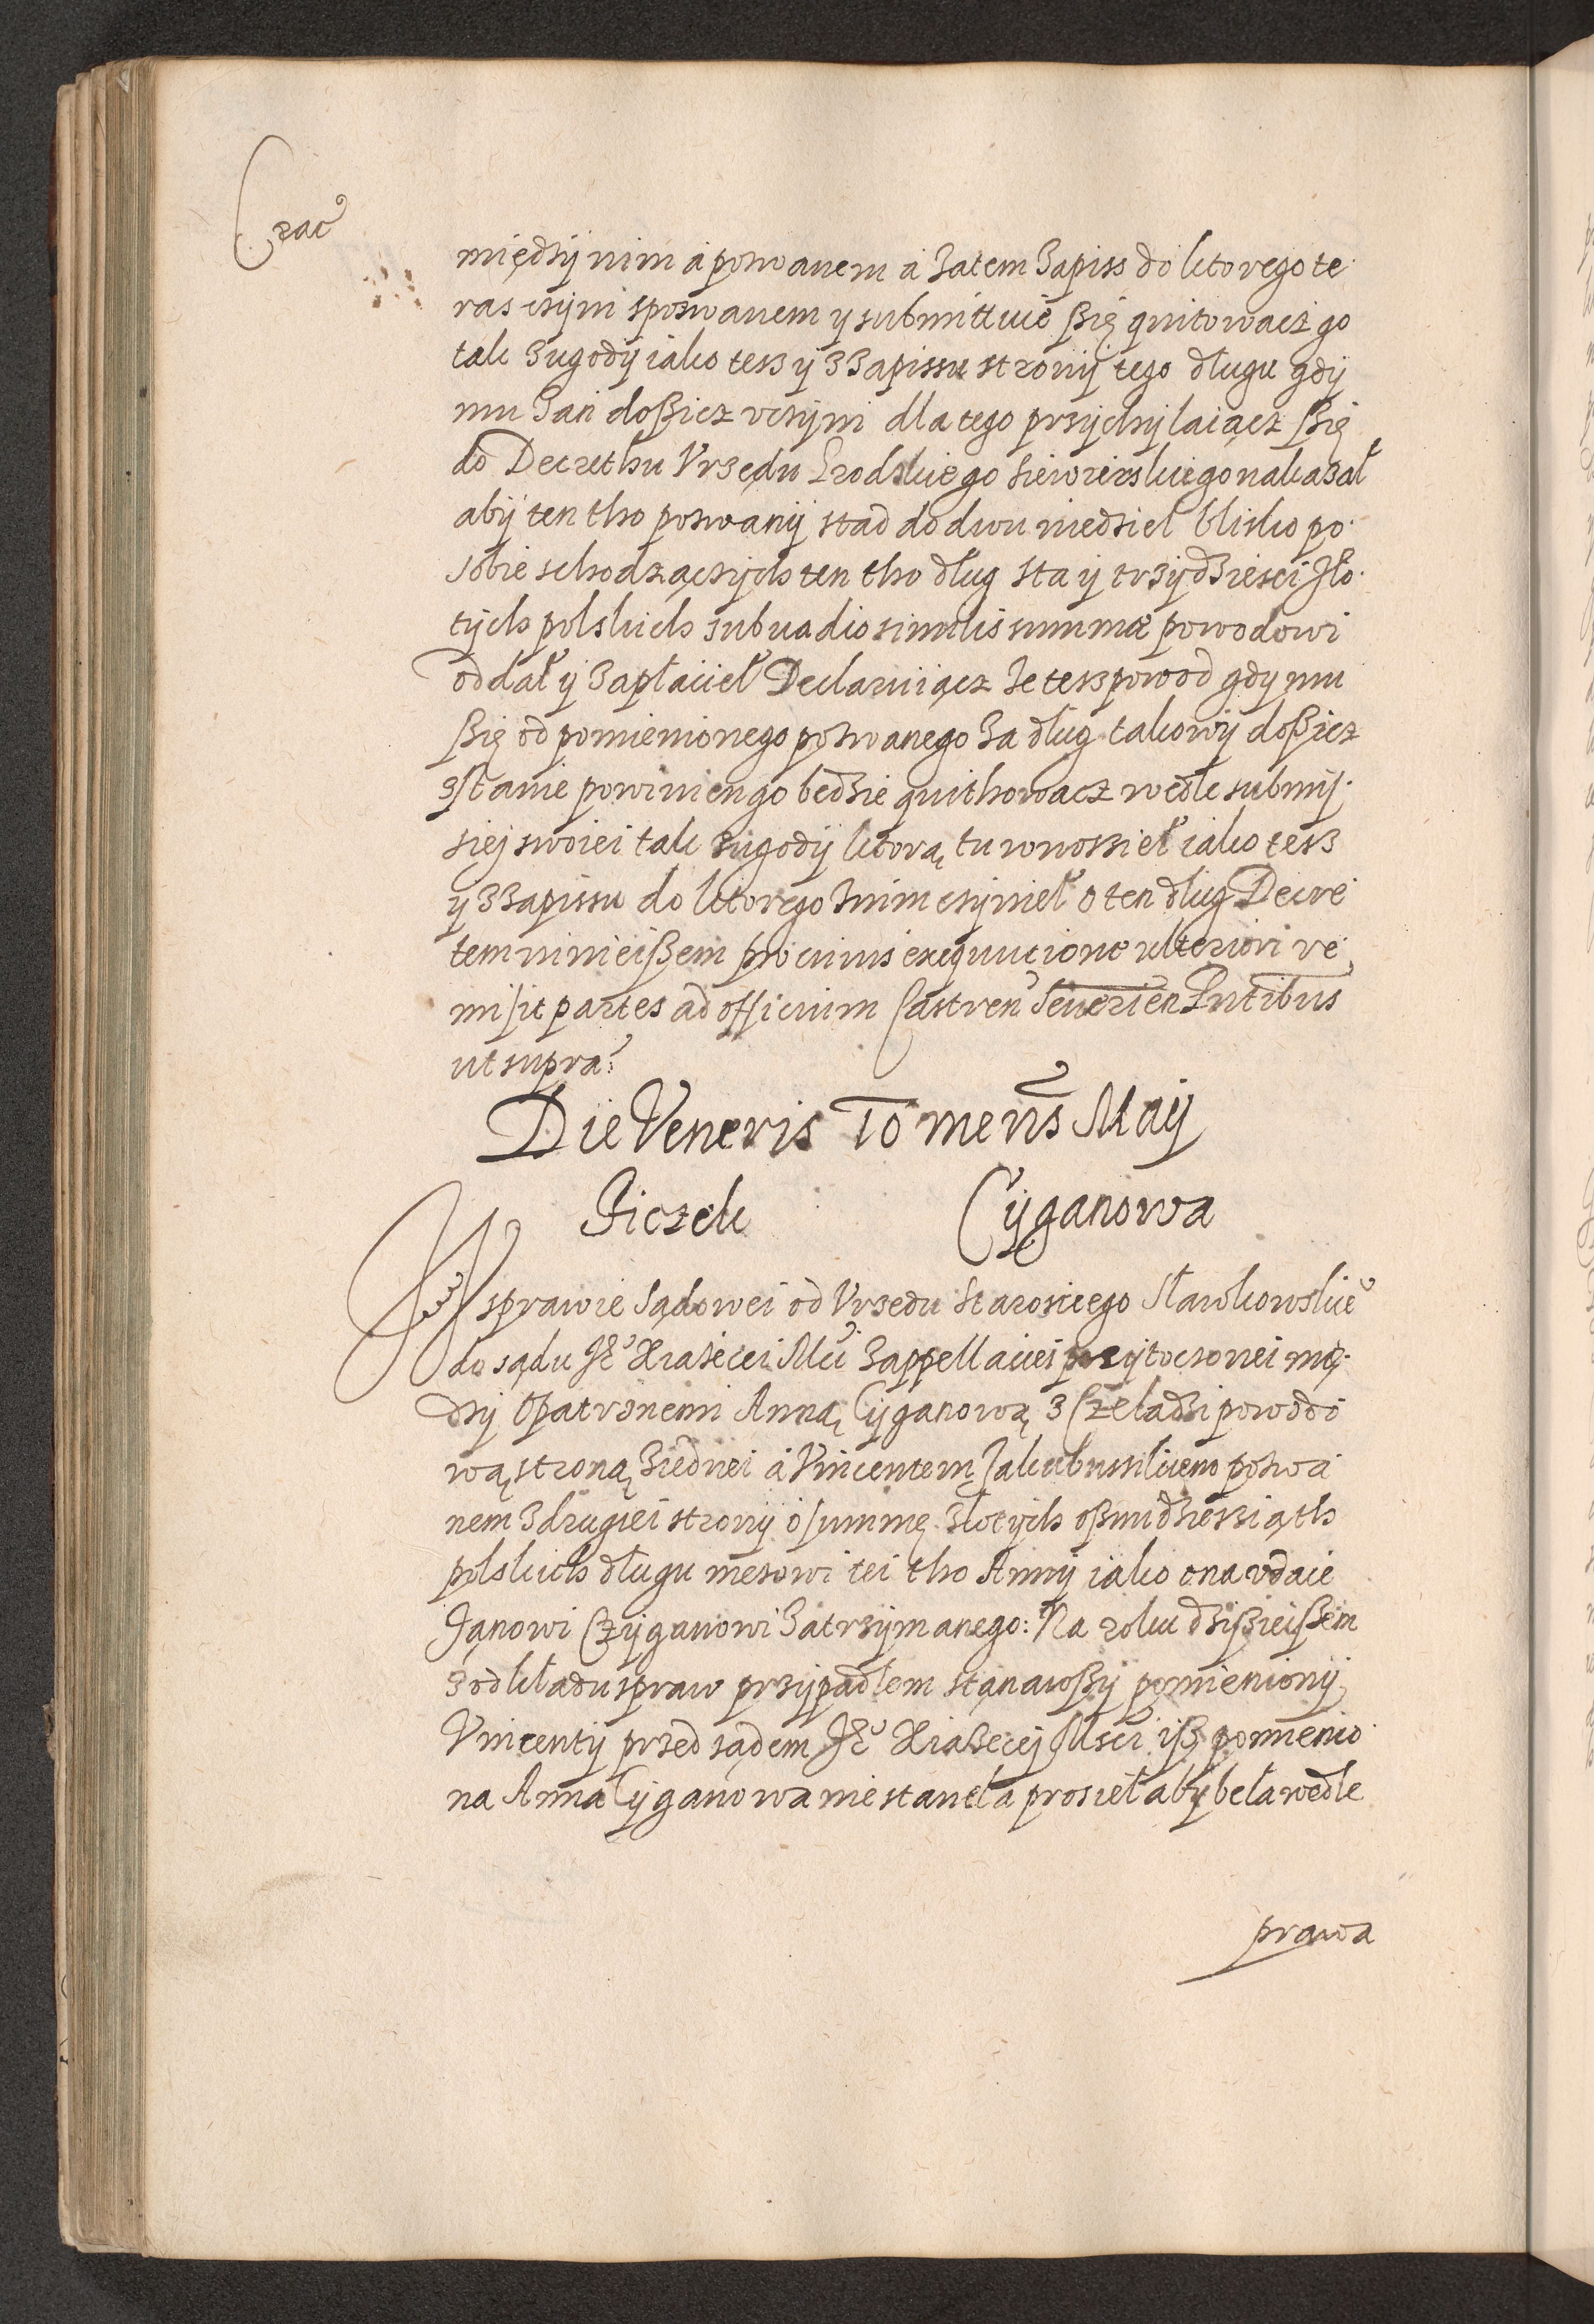 Crac
między nim a pozwanem a zatem zapiss do ktorego te
raz czyni spozwanem y submittuie ssię quitowacz go
tak z ugody iako tesz y z zapissu strony tego długu gdy
mu zań dossicz vczyni dla tego przychylaiącz ssię
do Decrethu Vrzędu Grodskiego Siewierskiego nakazał
aby ten tho pozwany stąd do dwu niedziel blisko po
sobie schodzączych ten tho dług sta y trzydziesci zło
tych polskich sub vadio similis summæ powodowi
oddał y zapłaciel Declaruiącz ze tesz powod gdy mu
ssię od pomienionego pozwanego za dług takowy dossicz
zstanie powinien go bedzie quithowacz wedle submis
siej swoiei tak z ugody ktorą tu wnossieł iako tesz
y z zapissu do ktorego z nim czynieł o ten dług Decre
tem ninieissem pro cuius exequucione ulteriori re
misit partes ad officium Castren Seuerien Pntibus
ut supra:
Die Veneris 10 mens Maij
Jiczek Cyganowa
W sprawie sądowei od Vrzedu Starosciego Sławkowskie
do sądu Je Xiazecei Mci z appellaciei przytoczonei mię
dzy Opatrznemi Anną Cyganową z Czeladzi powodo
wą stroną z iednei a Vincentem Jakubusskiem pozwa
nem z drugiei strony o summę złotych ossmidziessiąth
polskich długu mezowi tei tho Anny iako ona vdaie
Janowi Czyganowi zatrzymanego: Na roku dzissieissem
z odkładu spraw przypadłem stanawssy pomieniony
Vincenty przed sądem Je Xiazecej Msci isz pomienio
na Anna Cyganowa nie staneła prosieł aby beła wedle
prawa